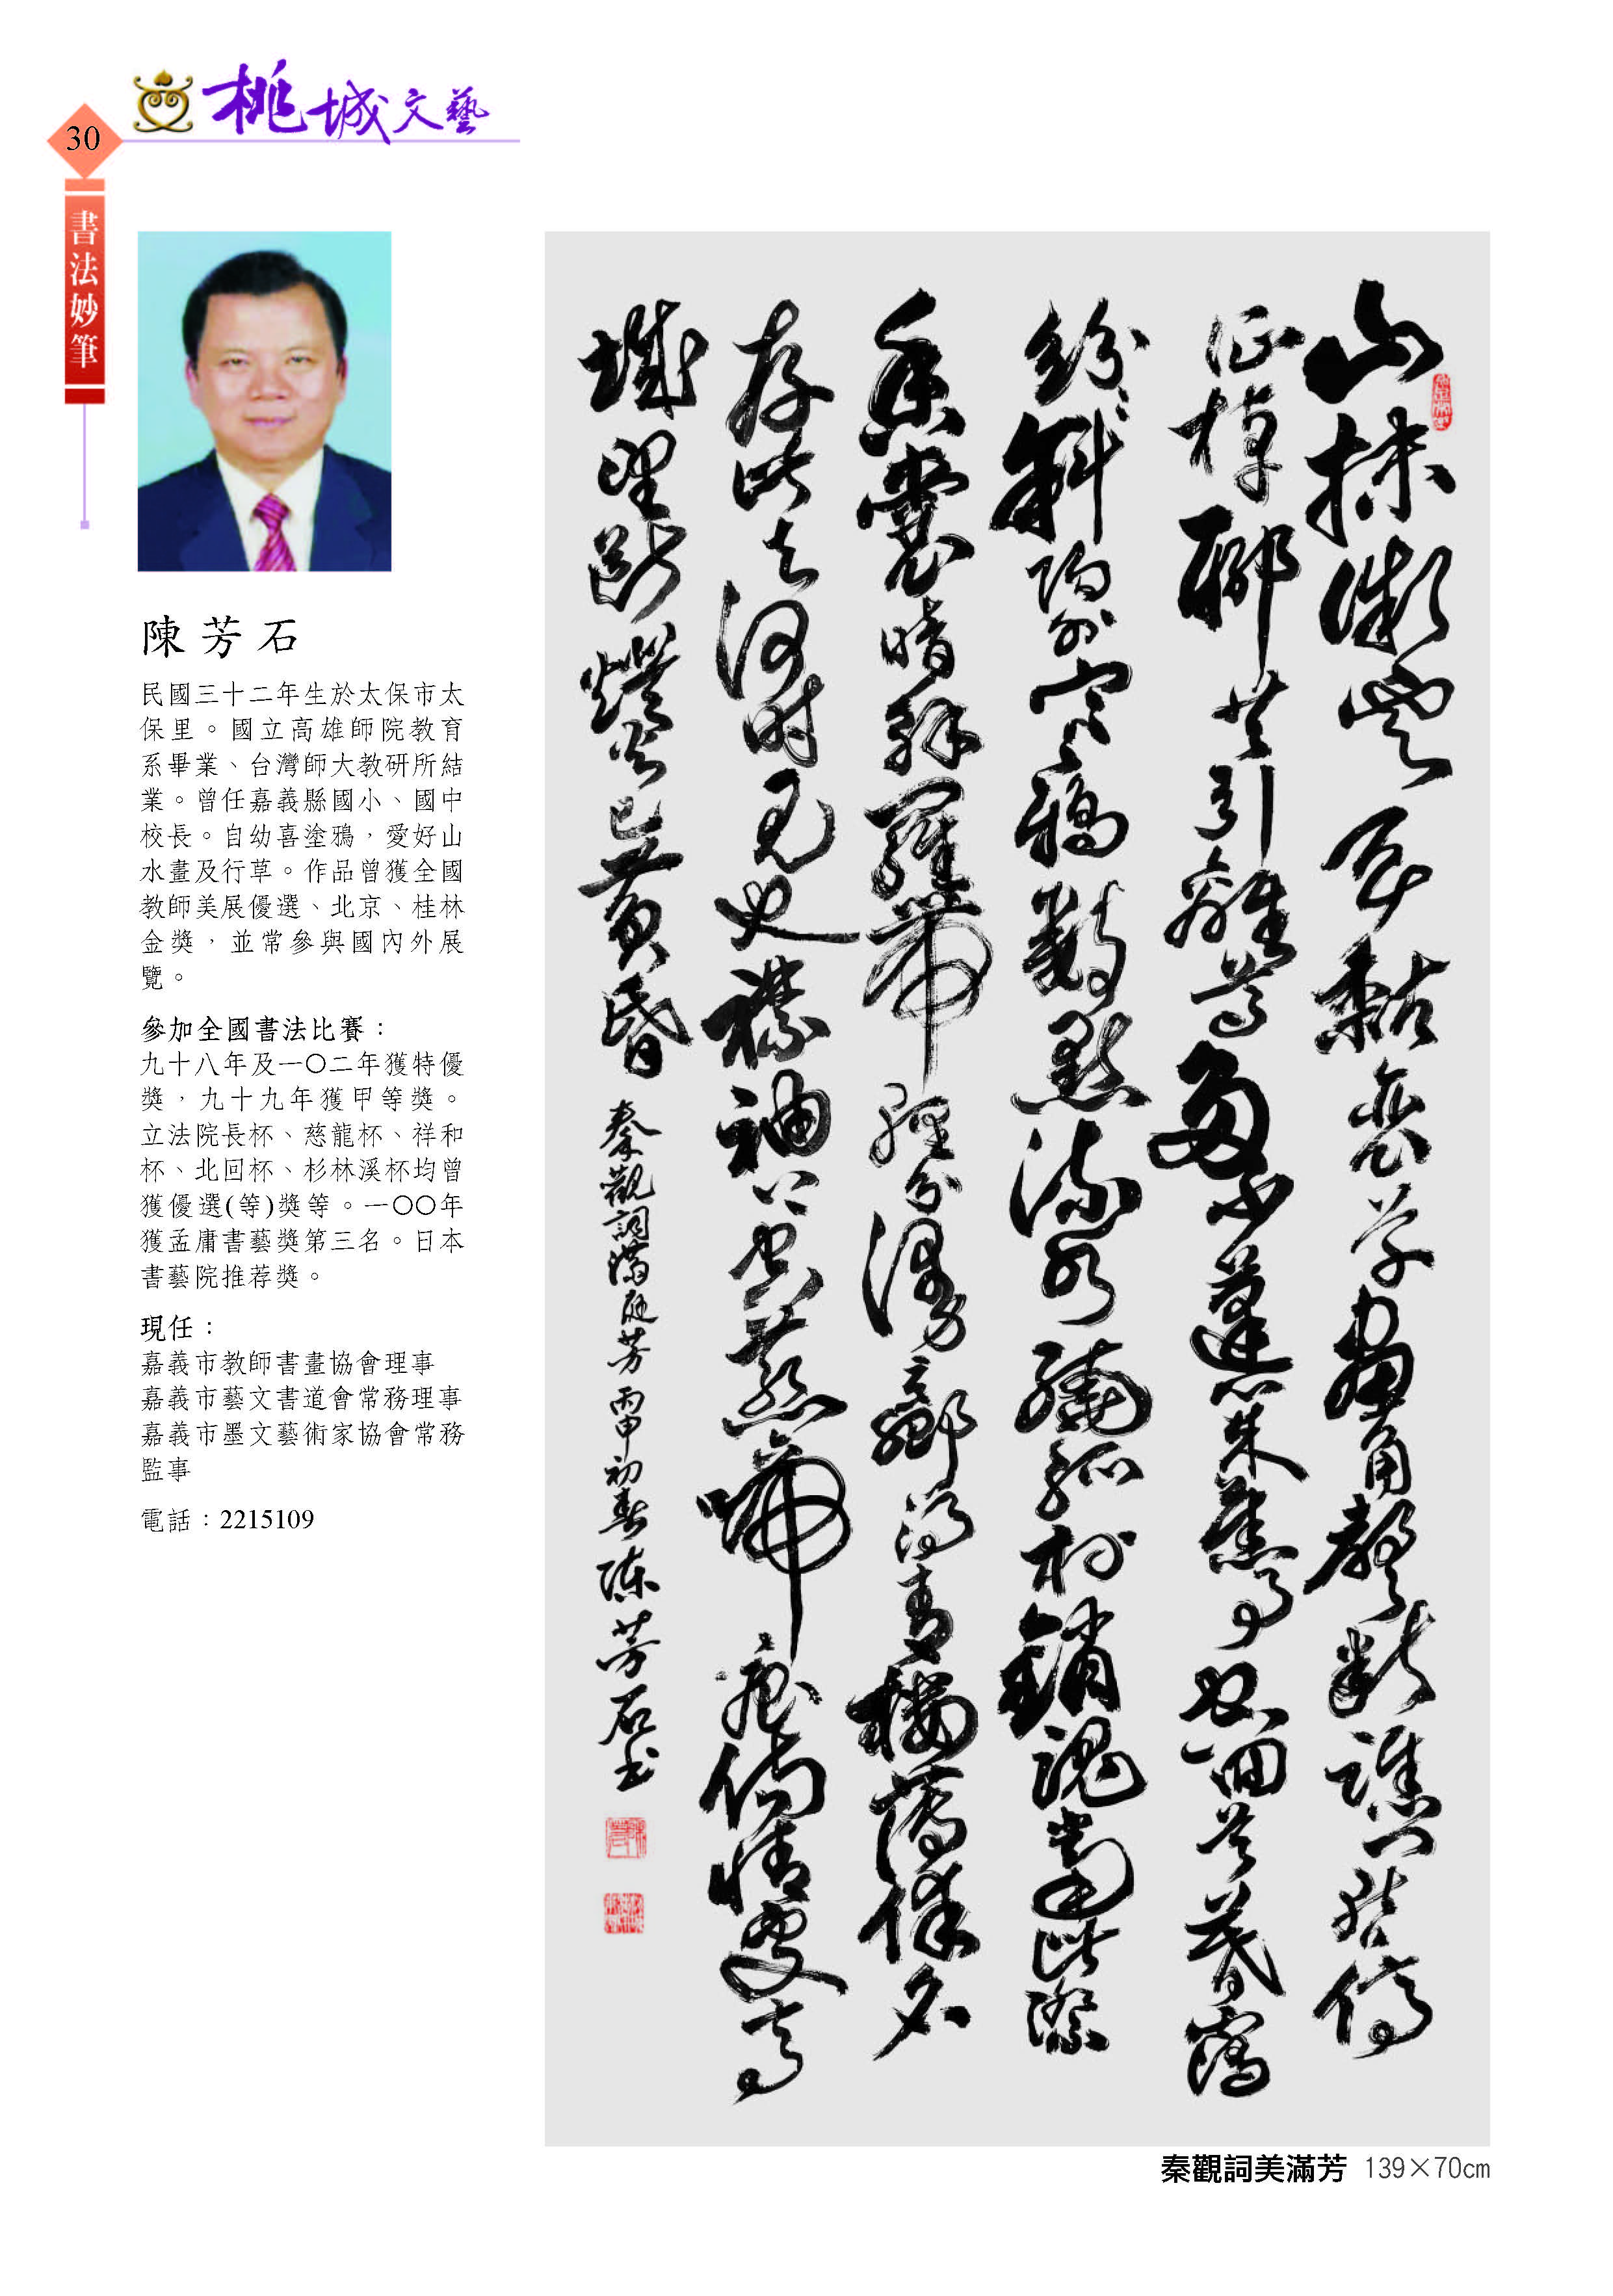 桃城文藝
30
書法妙筆
陳芳石
民國三十二年生於太保市太
保里。國立高雄師院教育
系畢業、台灣師大教研所結
業。曾任嘉義縣國小、國中
校長。自幼喜塗鴉，愛好山
水畫及行草。作品曾獲全國
教師美展優選、北京、桂林
金獎，並常參與國內外展
覽。
參加全國書法比賽：
九十八年及一○二年獲特優
獎，九十九年獲甲等獎。
立法院長杯、慈龍杯、祥和
杯、北回杯、杉林溪杯均曾
獲優選(等)獎等。一○○年
獲孟庸書藝獎第三名。日本
書藝院推荐獎。
現任：
嘉義市教師書畫協會理事
嘉義市藝文書道會常務理事
嘉義市墨文藝術家協會常務
監事
電話：2215109
山抹微雲天黏衰草畫角聲斷譙門暫停
征棹聊共引離尊多少蓬萊舊事空回首暮靄
紛紛斜陽外寒鴉數點流水繞孤村銷魂當此際
香囊暗解羅帶輕分漫勞鄉得青樓薄倖名
存此去何時見也襟袖上空惹啼痕傷情處高
城望斷燈火已黃昏 秦觀詞滿庭芳 丙申初春 陳芳石書
秦觀詞美滿芳 139×70cm